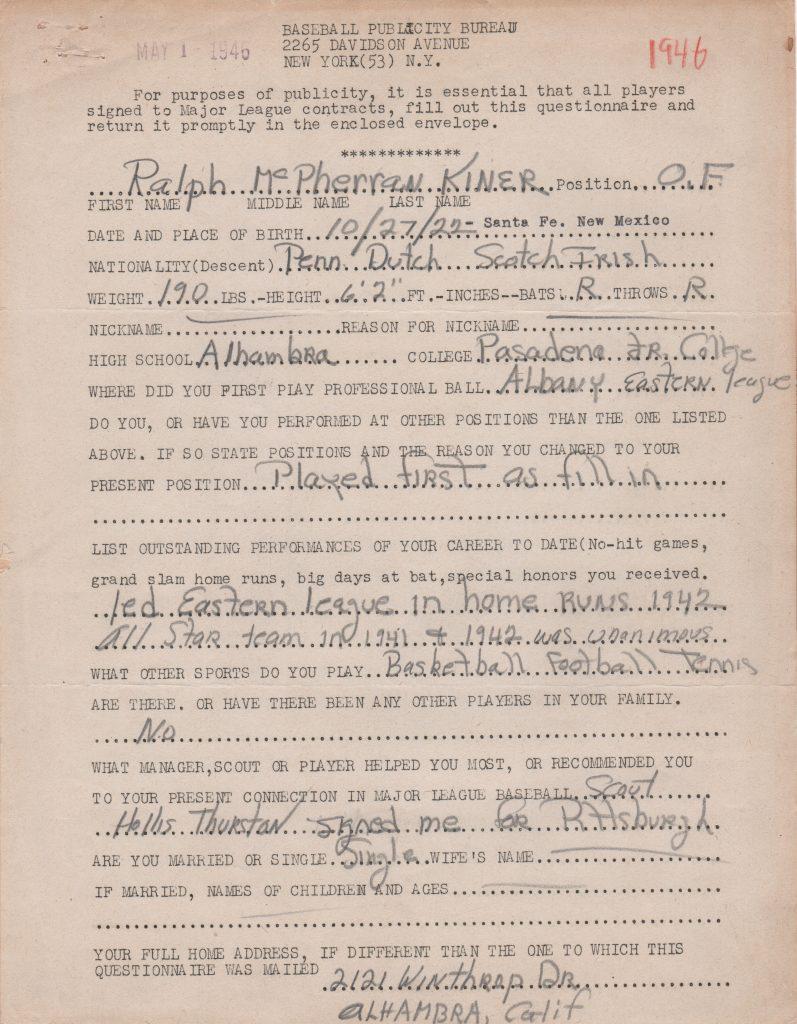 BASEBALL PUBLICITY BUREAU
MAY 1 1946 2265 DAVIDSON AVENUE 1946
NEW YORK(53) N.Y.
For purposes of publicity, it is essential that all players
signed to Major League contracts, fill out this questionnaire and
return it promptly in the enclosed envelope.
*************
....Ralph McPherran KINER..Position...O.F
FIRST NAME MIDDLE NAME LAST NAME
DATE AND PLACE OF BIRTH..10/27/22- Santa Fe. New Mexico
NATIONALITY(Descent).Penn Dutch Scotch IRish
WEIGHT.190.LBS.-HEIGHT..6'2"FT.-INCHES--BATS:.R.THROWS.R.
NICKNAME....................REASON FOR NICKNAME......................
HIGH SCHOOL.Alhambra....... COLLEGE.Pasadena JR. College
WHERE DID YOU FIRST PLAY PROFESSIONAL BALL..Albany Eastern league
DO YOU, OR HAVE YOU PERFORMED AT OTHER POSITIONS THAN THE ONE LISTED
ABOVE. IF SO STATE POSITIONS AND THE REASON YOU CHANGED TO YOUR
PRESENT POSITION...Played first as fill in.......
LIST OUTSTANDING PERFORMANCES OF YOUR CAREER TO DATE(No-hit games,
grand slam home runs, big days at bat,special honors you received.
led Eastern league in home RUNS 1942
All Star team in 1941 & 1942 was unanimous
WHAT OTHER SPORTS DO YOU PLAY..Basketball Football Tennis
ARE THERE. OR HAVE THERE BEEN ANY OTHER PLAYERS IN YOUR FAMILY.
.....No.......
WHAT MANAGER,SCOUT OR PLAYER HELPED YOU MOST, OR RECOMMENDED YOU
TO YOUR PRESENT CONNECTION IN MAJOR LEAGUE BASEBALL..Scout
..Hollis Thurston signed me for Pittsburgh.
ARE YOU MARRIED OR SINGLE.Single.WIFE'S NAME....................
IF MARRIED, NAMES OF CHILDREN AND AGES..............................
YOUR FULL HOME ADDRESS, IF DIFFERENT THAN THE ONE TO WHICH THIS
QUESTIONNAIRE WAS MAILED .2121 Winthrop Dr...............
ALHAMBRA, Calif